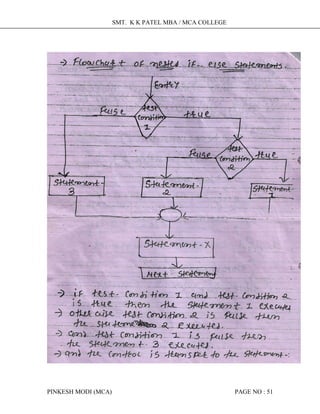 SMT. K K PATEL MBA / MCA COLLEGE
→ Flowchart of nested if.. else Statements.
Entry
test condition 1
False
true
test condition 2
False
true
Statement-3
Statement-2
Statement-1
Statement-X
Next Statement
→ if test condition 1 and test condition 2
is true then the statement 1 executes
→ otherwise test condition 2 is false then
the statement 2 executed.
→ and test condition 1 is false then
the statement 3 executed.
→ and the control is transfer to the statement-:
PINKESH MODI (MCA)
PAGE NO : 51